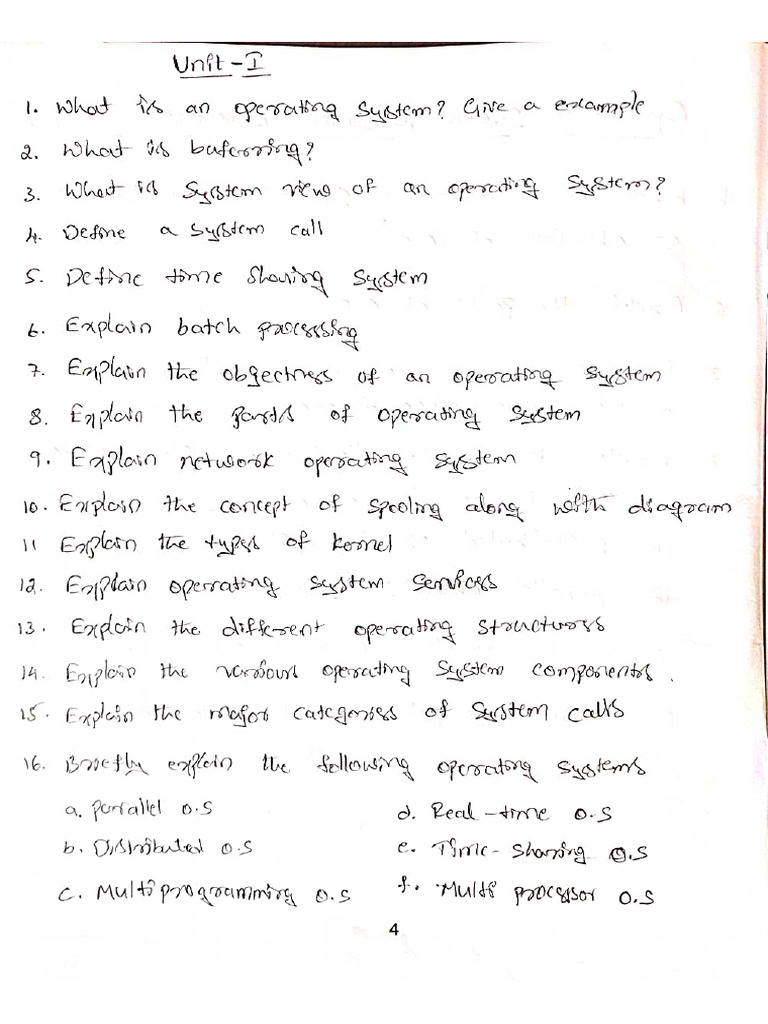 Unit - I
1. What is an operating system? Give a example
2. What is buferring?
3. What is system view of an operating system?
4. Define a system call
5. Define time sharing system
6. Explain batch processing
7. Explain the objectives of an operating system
8. Explain the parts of operating system
9. Explain network operating system
10. Explain the concept of spooling along with diagram
11 Explain the types of kernel
12. Explain operating system services
13. Explain the different operating structures
14. Explain the various operating system components.
15. Explain the major categories of system calls
16. Briefly explain the following operating systems
a. parallel O.S
d. Real-time O.S
b. Distributed O.S
e. Time-sharing O.S
c. Multiprogramming O.S
f. Multi processor O.S
4